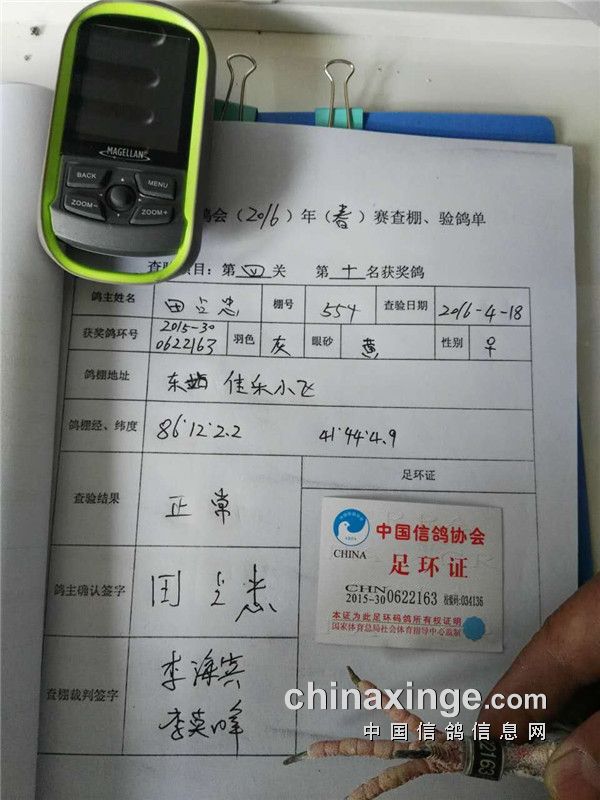 MAGELLAN
BACK
MENU
ZOOM-
ZOOM+
鸽会(2016)年(春)赛查棚、验鸽单
查验项目:第四关 第十名获奖鸽
鸽主姓名 田立忠 棚号 554 查验日期 2016-4-18
获奖鸽环号 2015-30 0622163 羽色 灰 眼砂 黄 性别 ♀
鸽棚地址 东站 佳乐小飞
鸽棚经、纬度 86°12'2.2 41°44'4.9
足环证
查验结果 正常
中国信鸽协会
CHINA
足环证
CHN
2015-30 0622163 检验码:034136
本证为此足环码鸽所有权证明
国家体育总局社会体育指导中心监制
鸽主确认签字
查棚裁判签字 李海宾
李英峰
chinaxinge.com
中国信鸽信息网
22163